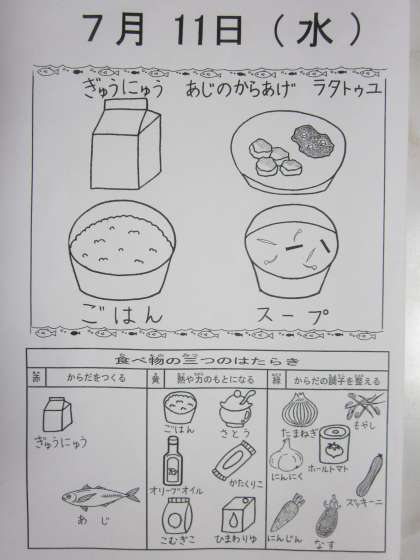 7月 11日 (水)
ぎゅうにゅう あじのからあげ ラタトゥユ
ごはん スープ
食べ物の三つのはたらき
赤 からだをつくる 黄 熱や力のもとになる 緑 からだの調子を整える
ぎゅうにゅう
あじ
ごはん さとう
オリーブオイル かたくりこ
こむぎこ ひまわりゆ
たまねぎ もやし
にんにく ホールトマト
ズッキーニ
にんじん なす